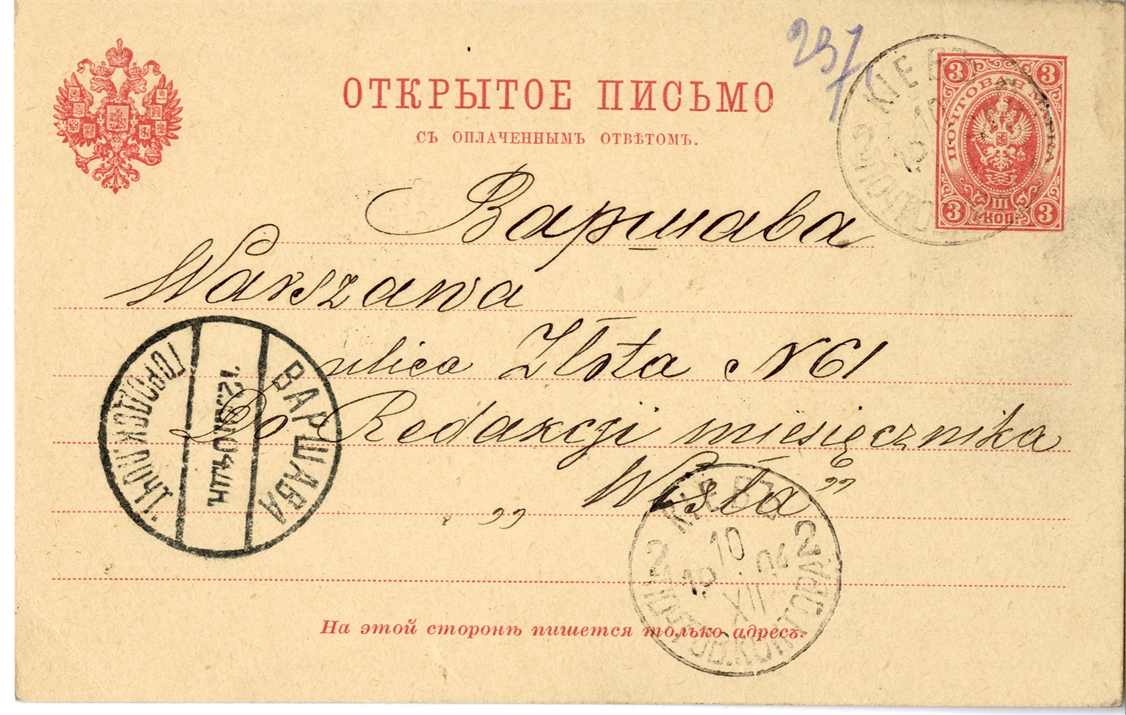 237
1
ОТКРЫТОЕ ПИСЬМО
СЪ ОПЛАЧЕННЫМЪ ОТВѢТОМЪ.
3 3
ПОЧТОВАЯ МАРКА
III
КОП.
3 3
КІЕВЪ
10
2
Варшава
Warszawa
ulica Złota N 61
Do Redakcji miesięcznika
„Wisła”
ВАРШАВА
12.XII.04
ГОРОДСК.
КІЕВЪ
2 10 2
19 04
XII
ПОЧТОВ.КОНТ.
На этой сторонѣ пишется только адресъ.